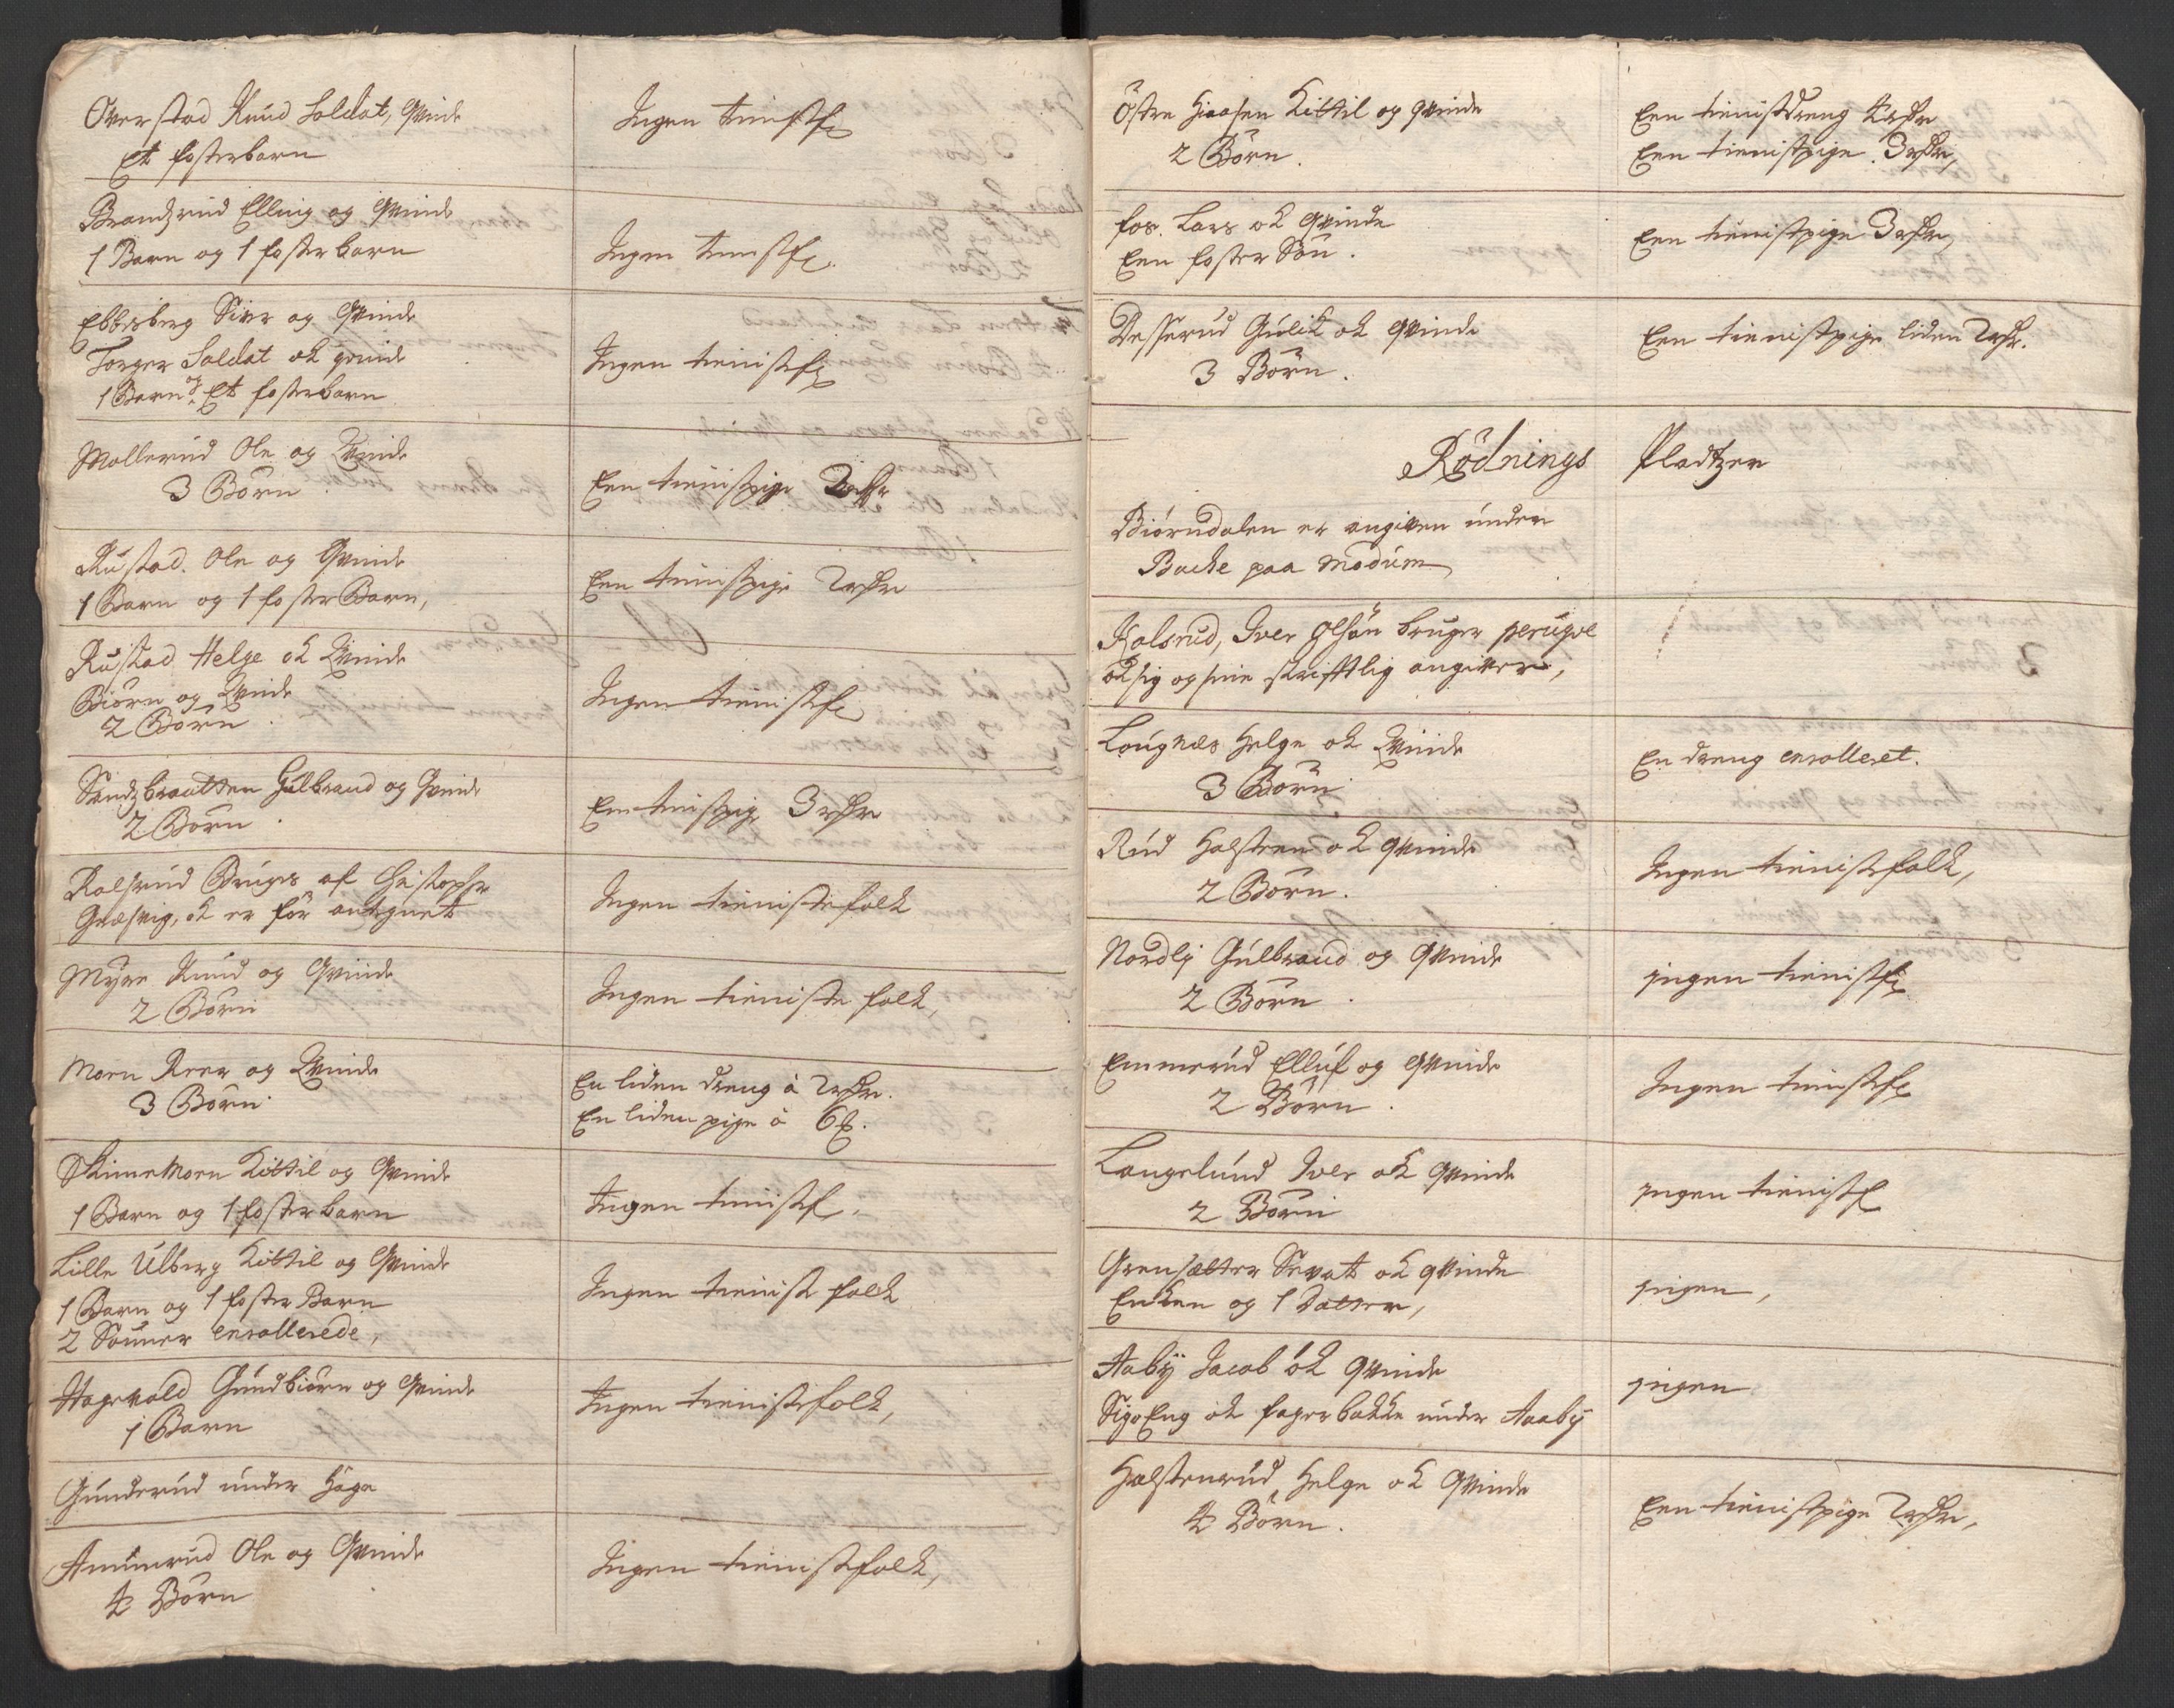 Overstad Knud Soldat, Qvinde
Et fosterbarn
Ingen tienistf
Brandzrud Elling og Qvinde
1 Barn og 1 fosterbarn
Ingen tienistf
Ebbesberg Siver og Qvinde
Torger Soldat ok qvinde
1 Barn og Et fosterbarn
Ingen tienistf
Mollerud Ole og Qvinde
3 Börn
Een tienistpige 2 rdr
Rustad. Ole og Qvinde
1 Barn og 1 foster Barn,
Een tienistpige 2 rdr
Rustad Helge ok Qvinde
Biörn og Qvinde
2 Börn
Ingen tienistf
Sandzbraatten Gulbrand og Qvinde
2 Börn
Een tienistpige 3 rdr
Kolsrud Bruges af Christopher
Græsvig, ok er för antegnet
Ingen tienistefolk
Myre Knud og Qvinde
2 Börn
Ingen tieniste folk,
Moen Reer og Qvinde
3 Börn
En liden dreng à 2 rdr.
En liden pige à 6
Skinnemoen Kittil og Qvinde
1 Barn og 1 fosterbarn
Ingen tienistf.
Lille Ulberg Kittil og Qvinde
1 Barn og 1 foster Barn
2 Sönner enrollerede,
Ingen tienist folk
Hagevald Gundbiörn og Qvinde
1 Barn
Ingen tienistfolk,
Gunderud under Haga
Amunrud Ole og Qvinde
4 Börn
Ingen tienistfolk,
Östre Hiaasen Kittil og qvinde
2 Börn.
Een tienistdreng 4 rdr
Een tienistpige 3 rdr,
fos. Lars ok Qvinde
Een foster Sön.
Een tienistpige 3 rdr,
Desserud Gulik ok Qvinde
3 Börn.
Een tienistpige liden 2 rdr.
Rödnings Pladtzer
Biörndalen er angiven under
Backe paa Modum
Kolsrud, Iver Olsön bruger
ok sig og sine skrifftlig angiver,
Lougnæs Helge ok Qvinde
3 Börn
En dreng enrolleret.
Rud Halsten ok qvinde
2 Börn.
Ingen tienistfolk,
Nordby Gulbrand og Qvinde
2 Börn.
jngen tienistf
Emmerud Elluf og Qvinde
2 Börn.
Ingen tienistf
Langelund Iver ok Qvinde
2 Börn
jngen tienistf
Grensætter Sevat ok qvinde
Enken og 1 Datter,
jngen,
Aaby Jacob ok Qvinde
Sigs Eng ok fagerbakke under Aaby
jngen
Halstenrud, Helge ok Qvinde
4 Börn.
Een tienistpige 2 rdr,